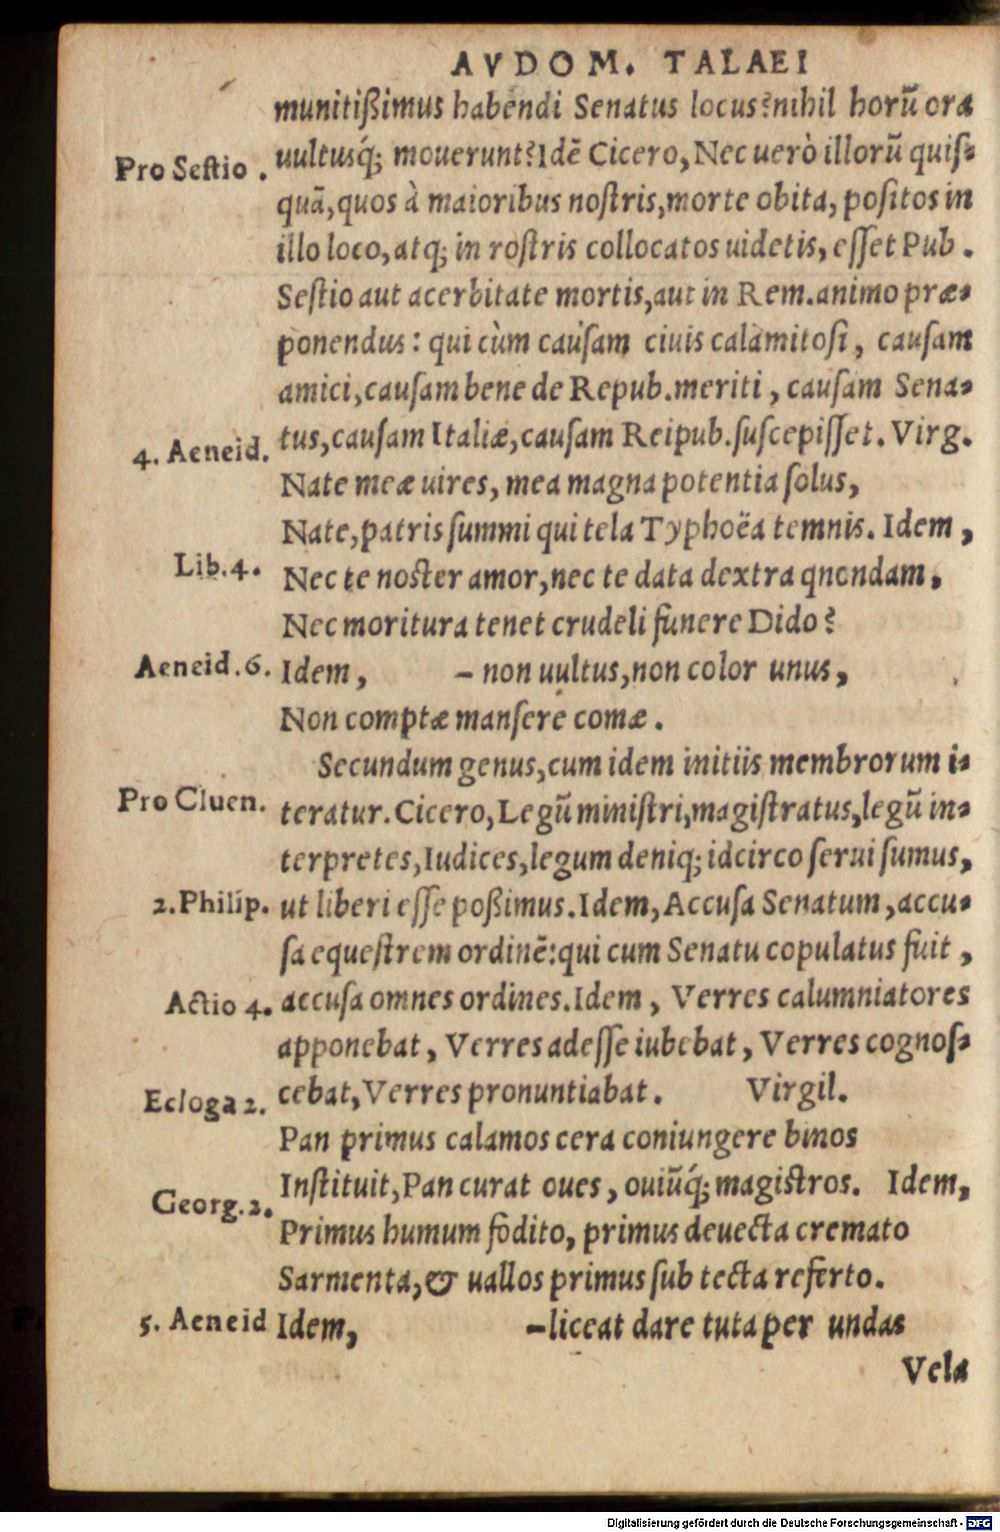 AVDOM. TALAEI
munitißimus habendi Senatus locus?nihil horũ ora
Pro Sestio . uultusq́; mouerunt?Idẽ Cicero, Nec uerò illorũ quiſ-
quã, quos à maioribus noſtris, morte obita, poſitos in
illo loco, atq; in roſtris collocatos uidetis, eſſet Pub .
Seſtio aut acerbitate mortis, aut in Rem. animo præ-
ponendus: qui cùm cauſam ciuis calamitoſi, cauſam
amici, cauſam bene de Repub. meriti, cauſam Sena-
4. Aeneid. tus, cauſam Italiæ, cauſam Reipub. ſuſcepiſſet. Virg.
Nate meæ uires, mea magna potentia ſolus,
Nate, patris ſummi qui tela Typhoëa temnis. Idem,
Lib.4. Nec te noster amor, nec te data dextra qnondam,
Nec moritura tenet crudeli funere Dido?
Aeneid.6. Idem, – non uultus, non color unus,
Non comptæ manſere comæ.
Secundum genus, cum idem initiis membrorum i-
Pro Cluen. teratur. Cicero, Legũ miniſtri, magiſtratus, legũ in-
terpretes, Iudices, legum deniq; idcirco ſerui ſumus,
2.Philip. ut liberi eſſe poßimus. Idem, Accuſa Senatum, accu-
ſa equeſtrem ordinẽ: qui cum Senatu copulatus fuit,
Actio 4. accuſa omnes ordines. Idem, Verres calumniatores
apponebat, Verres adeſſe iubebat, Verres cognoſ-
cebat, Verres pronuntiabat. Virgil.
Ecloga 2.
Pan primus calamos cera coniungere binos
Inſtituit, Pan curat oues, ouiũq́; magiſtros. Idem,
Georg.2.
Primus humum fodito, primus deuecta cremato
Sarmenta, & uallos primus ſub tecta referto.
5. Aeneid Idem, –liceat dare tuta per undas
Vela
Digitalisierung gefördert durch die Deutsche Forschungsgemeinschaft - DFG